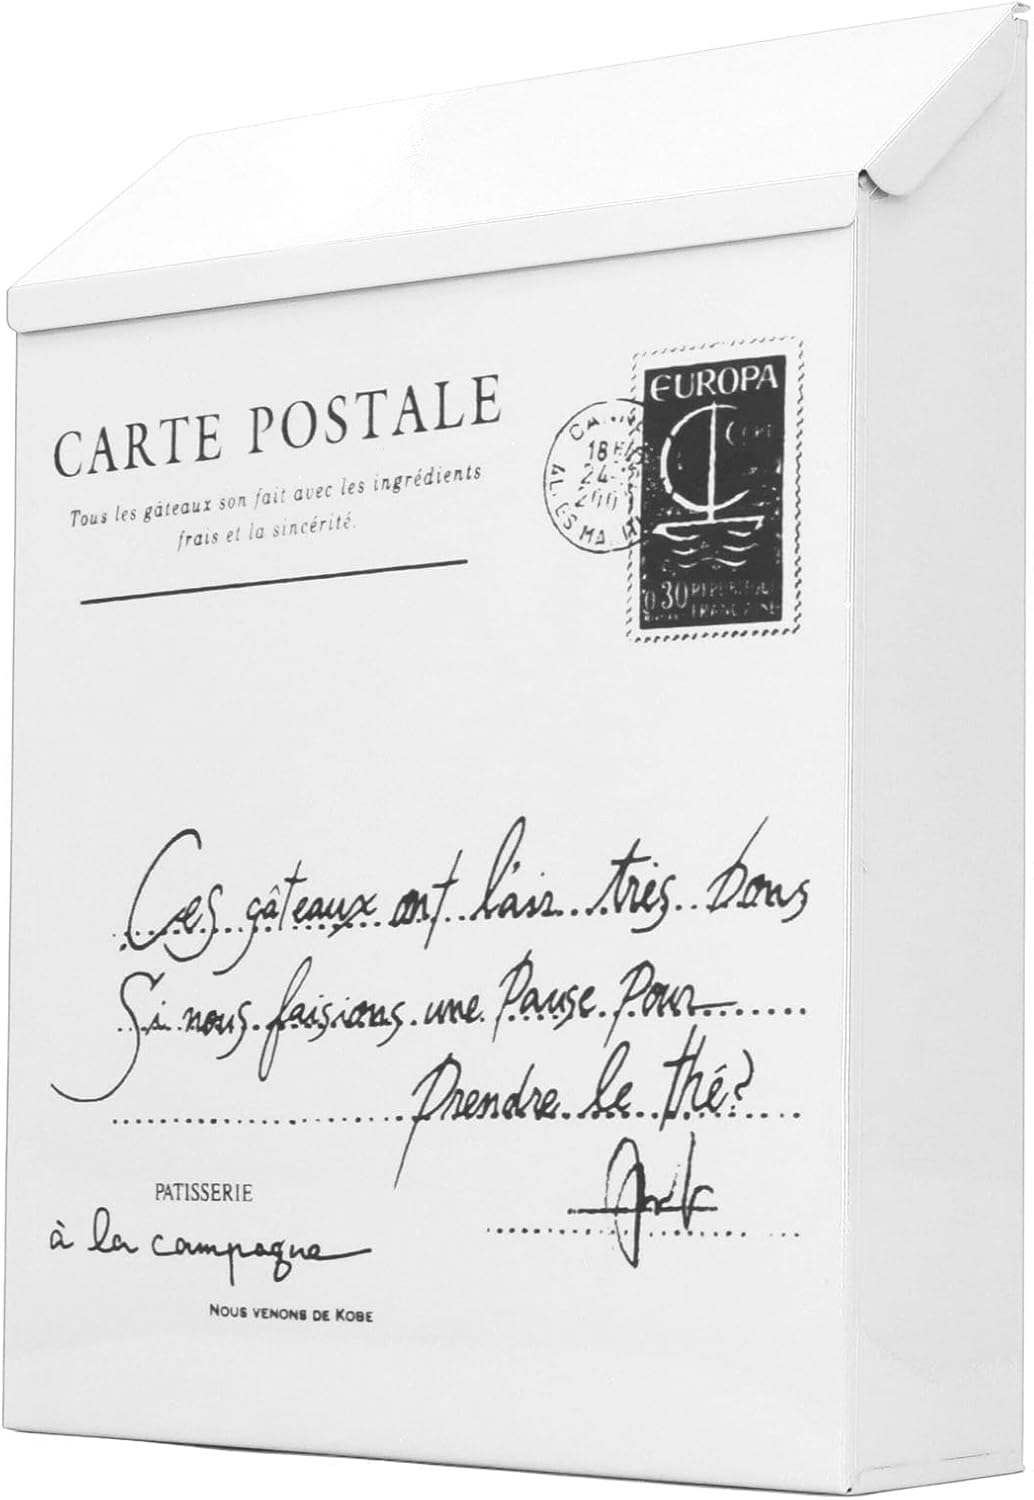 CARTE POSTALE
Tous les gâteaux son fait avec les ingrédients
frais et la sincérité.
EUROPA
18H
24
0,30 REPUBLIQUE
FRANCAISE
Ces gâteaux ont l'air très bons
Si nous faisions une Pause Pour
Prendre le thé?
PATISSERIE
à la campagne
NOUS VENONS DE KOBE